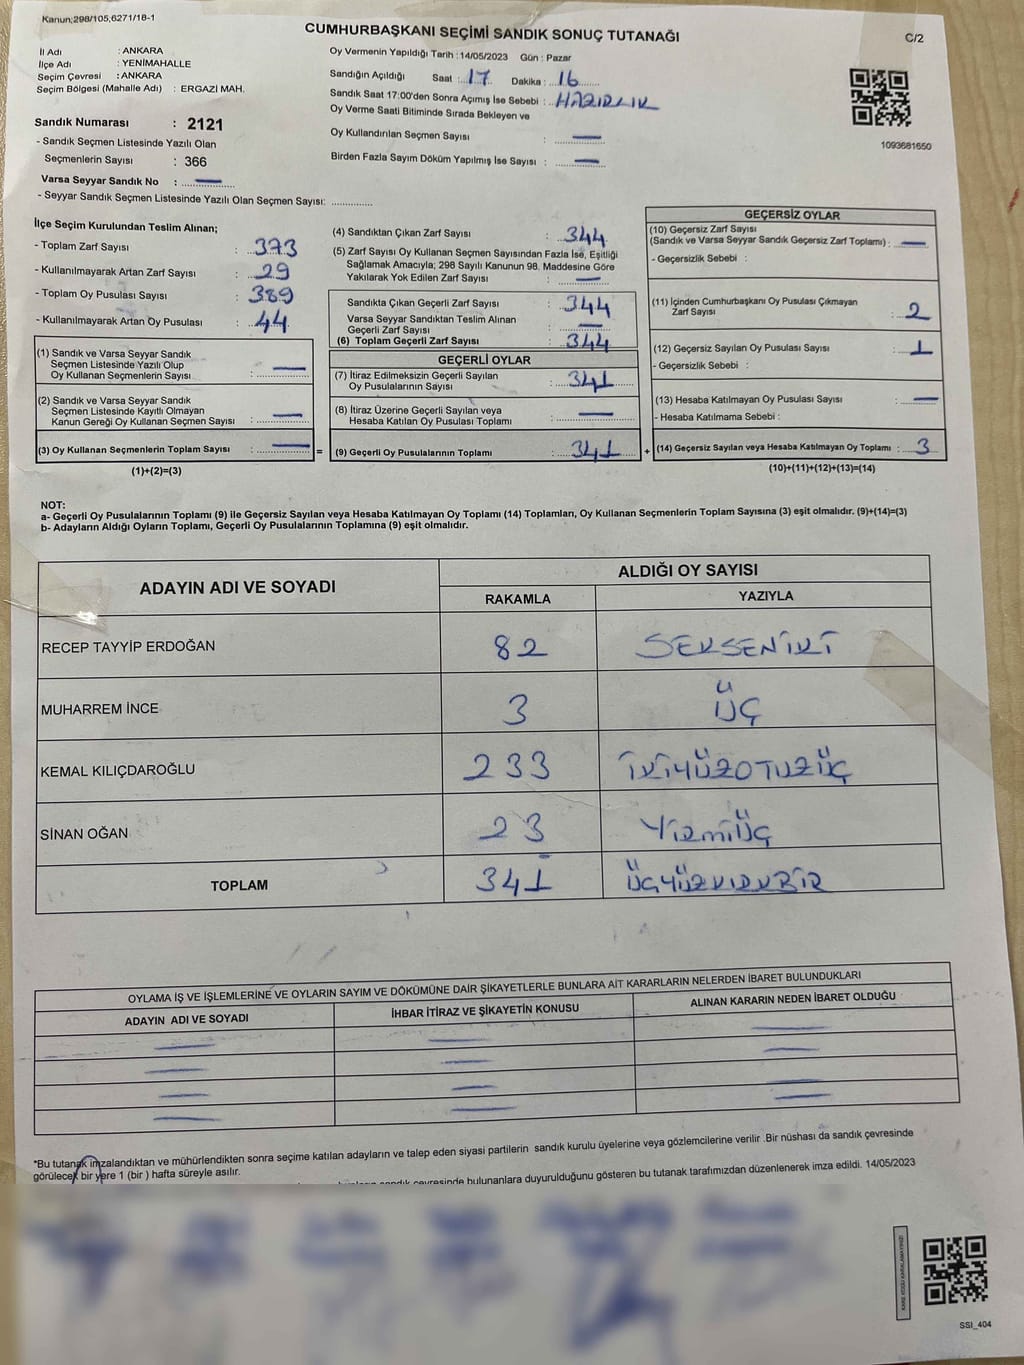 Kanun;298/105,6271/18-1
CUMHURBAŞKANI SEÇİMİ SANDIK SONUÇ TUTANAĞI
C/2
İl Adı : ANKARA
İlçe Adı : YENİMAHALLE
Seçim Çevresi : ANKARA
Seçim Bölgesi (Mahalle Adı) : ERGAZİ MAH.
Oy Vermenin Yapıldığı Tarih : 14/05/2023 Gün : Pazar
Sandığın Açıldığı Saat : 17 Dakika : 16
Sandık Saat 17:00'den Sonra Açımış İse Sebebi : HAZIRLIK
Oy Verme Saati Bitiminde Sırada Bekleyen ve
Oy Kullandırılan Seçmen Sayısı : —
Birden Fazla Sayım Döküm Yapılmış İse Sayısı : —
1093681650
Sandık Numarası : 2121
- Sandık Seçmen Listesinde Yazılı Olan
Seçmenlerin Sayısı : 366
Varsa Seyyar Sandık No : —
- Seyyar Sandık Seçmen Listesinde Yazılı Olan Seçmen Sayısı: ..............
İlçe Seçim Kurulundan Teslim Alınan;
- Toplam Zarf Sayısı : 373
- Kullanılmayarak Artan Zarf Sayısı : 29
- Toplam Oy Pusulası Sayısı : 389
- Kullanılmayarak Artan Oy Pusulası : 44
(1) Sandık ve Varsa Seyyar Sandık
Seçmen Listesinde Yazılı Olup
Oy Kullanan Seçmenlerin Sayısı : —
(2) Sandık ve Varsa Seyyar Sandık
Seçmen Listesinde Kayıtlı Olmayan
Kanun Gereği Oy Kullanan Seçmen Sayısı : —
(3) Oy Kullanan Seçmenlerin Toplam Sayısı : —
(1)+(2)=(3)
=
(4) Sandıktan Çıkan Zarf Sayısı : 344
(5) Zarf Sayısı Oy Kullanan Seçmen Sayısından Fazla İse, Eşitliği
Sağlamak Amacıyla; 298 Sayılı Kanunun 98. Maddesine Göre
Yakılarak Yok Edilen Zarf Sayısı : —
Sandıkta Çıkan Geçerli Zarf Sayısı : 344
Varsa Seyyar Sandıktan Teslim Alınan
Geçerli Zarf Sayısı : —
(6) Toplam Geçerli Zarf Sayısı : 344
GEÇERLİ OYLAR
(7) İtiraz Edilmeksizin Geçerli Sayılan
Oy Pusulalarının Sayısı : 341
(8) İtiraz Üzerine Geçerli Sayılan veya
Hesaba Katılan Oy Pusulası Toplamı : —
(9) Geçerli Oy Pusulalarının Toplamı : 341
+
GEÇERSİZ OYLAR
(10) Geçersiz Zarf Sayısı
(Sandık ve Varsa Seyyar Sandık Geçersiz Zarf Toplamı) : —
- Geçersizlik Sebebi :
(11) İçinden Cumhurbaşkanı Oy Pusulası Çıkmayan
Zarf Sayısı : 2
(12) Geçersiz Sayılan Oy Pusulası Sayısı : 1
- Geçersizlik Sebebi :
(13) Hesaba Katılmayan Oy Pusulası Sayısı : —
- Hesaba Katılmama Sebebi :
(14) Geçersiz Sayılan veya Hesaba Katılmayan Oy Toplamı : 3
(10)+(11)+(12)+(13)=(14)
NOT:
a- Geçerli Oy Pusulalarının Toplamı (9) ile Geçersiz Sayılan veya Hesaba Katılmayan Oy Toplamı (14) Toplamları, Oy Kullanan Seçmenlerin Toplam Sayısına (3) eşit olmalıdır. (9)+(14)=(3)
b- Adayların Aldığı Oyların Toplamı, Geçerli Oy Pusulalarının Toplamına (9) eşit olmalıdır.
ADAYIN ADI VE SOYADI ALDIĞI OY SAYISI
RAKAMLA YAZIYLA
RECEP TAYYİP ERDOĞAN 82 SEKSENİKİ
MUHARREM İNCE 3 ÜÇ
KEMAL KILIÇDAROĞLU 233 İKİYÜZOTUZÜÇ
SİNAN OĞAN 23 YİRMİÜÇ
TOPLAM 341 ÜÇYÜZKIRKBİR
OYLAMA İŞ VE İŞLEMLERİNE VE OYLARIN SAYIM VE DÖKÜMÜNE DAİR ŞİKAYETLERLE BUNLARA AİT KARARLARIN NELERDEN İBARET BULUNDUKLARI
ADAYIN ADI VE SOYADI İHBAR İTİRAZ VE ŞİKAYETİN KONUSU ALINAN KARARIN NEDEN İBARET OLDUĞU
— — —
— — —
— — —
— — —
*Bu tutanak imzalandıktan ve mühürlendikten sonra seçime katılan adayların ve talep eden siyasi partilerin sandık kurulu üyelerine veya gözlemcilerine verilir .Bir nüshası da sandık çevresinde
görülecek bir yere 1 (bir ) hafta süreyle asılır.
sandık çevresinde bulunanlara duyurulduğunu gösteren bu tutanak tarafımızdan düzenlenerek imza edildi. 14/05/2023
KARE KODU KARALAMAYINIZ!
SSI_404